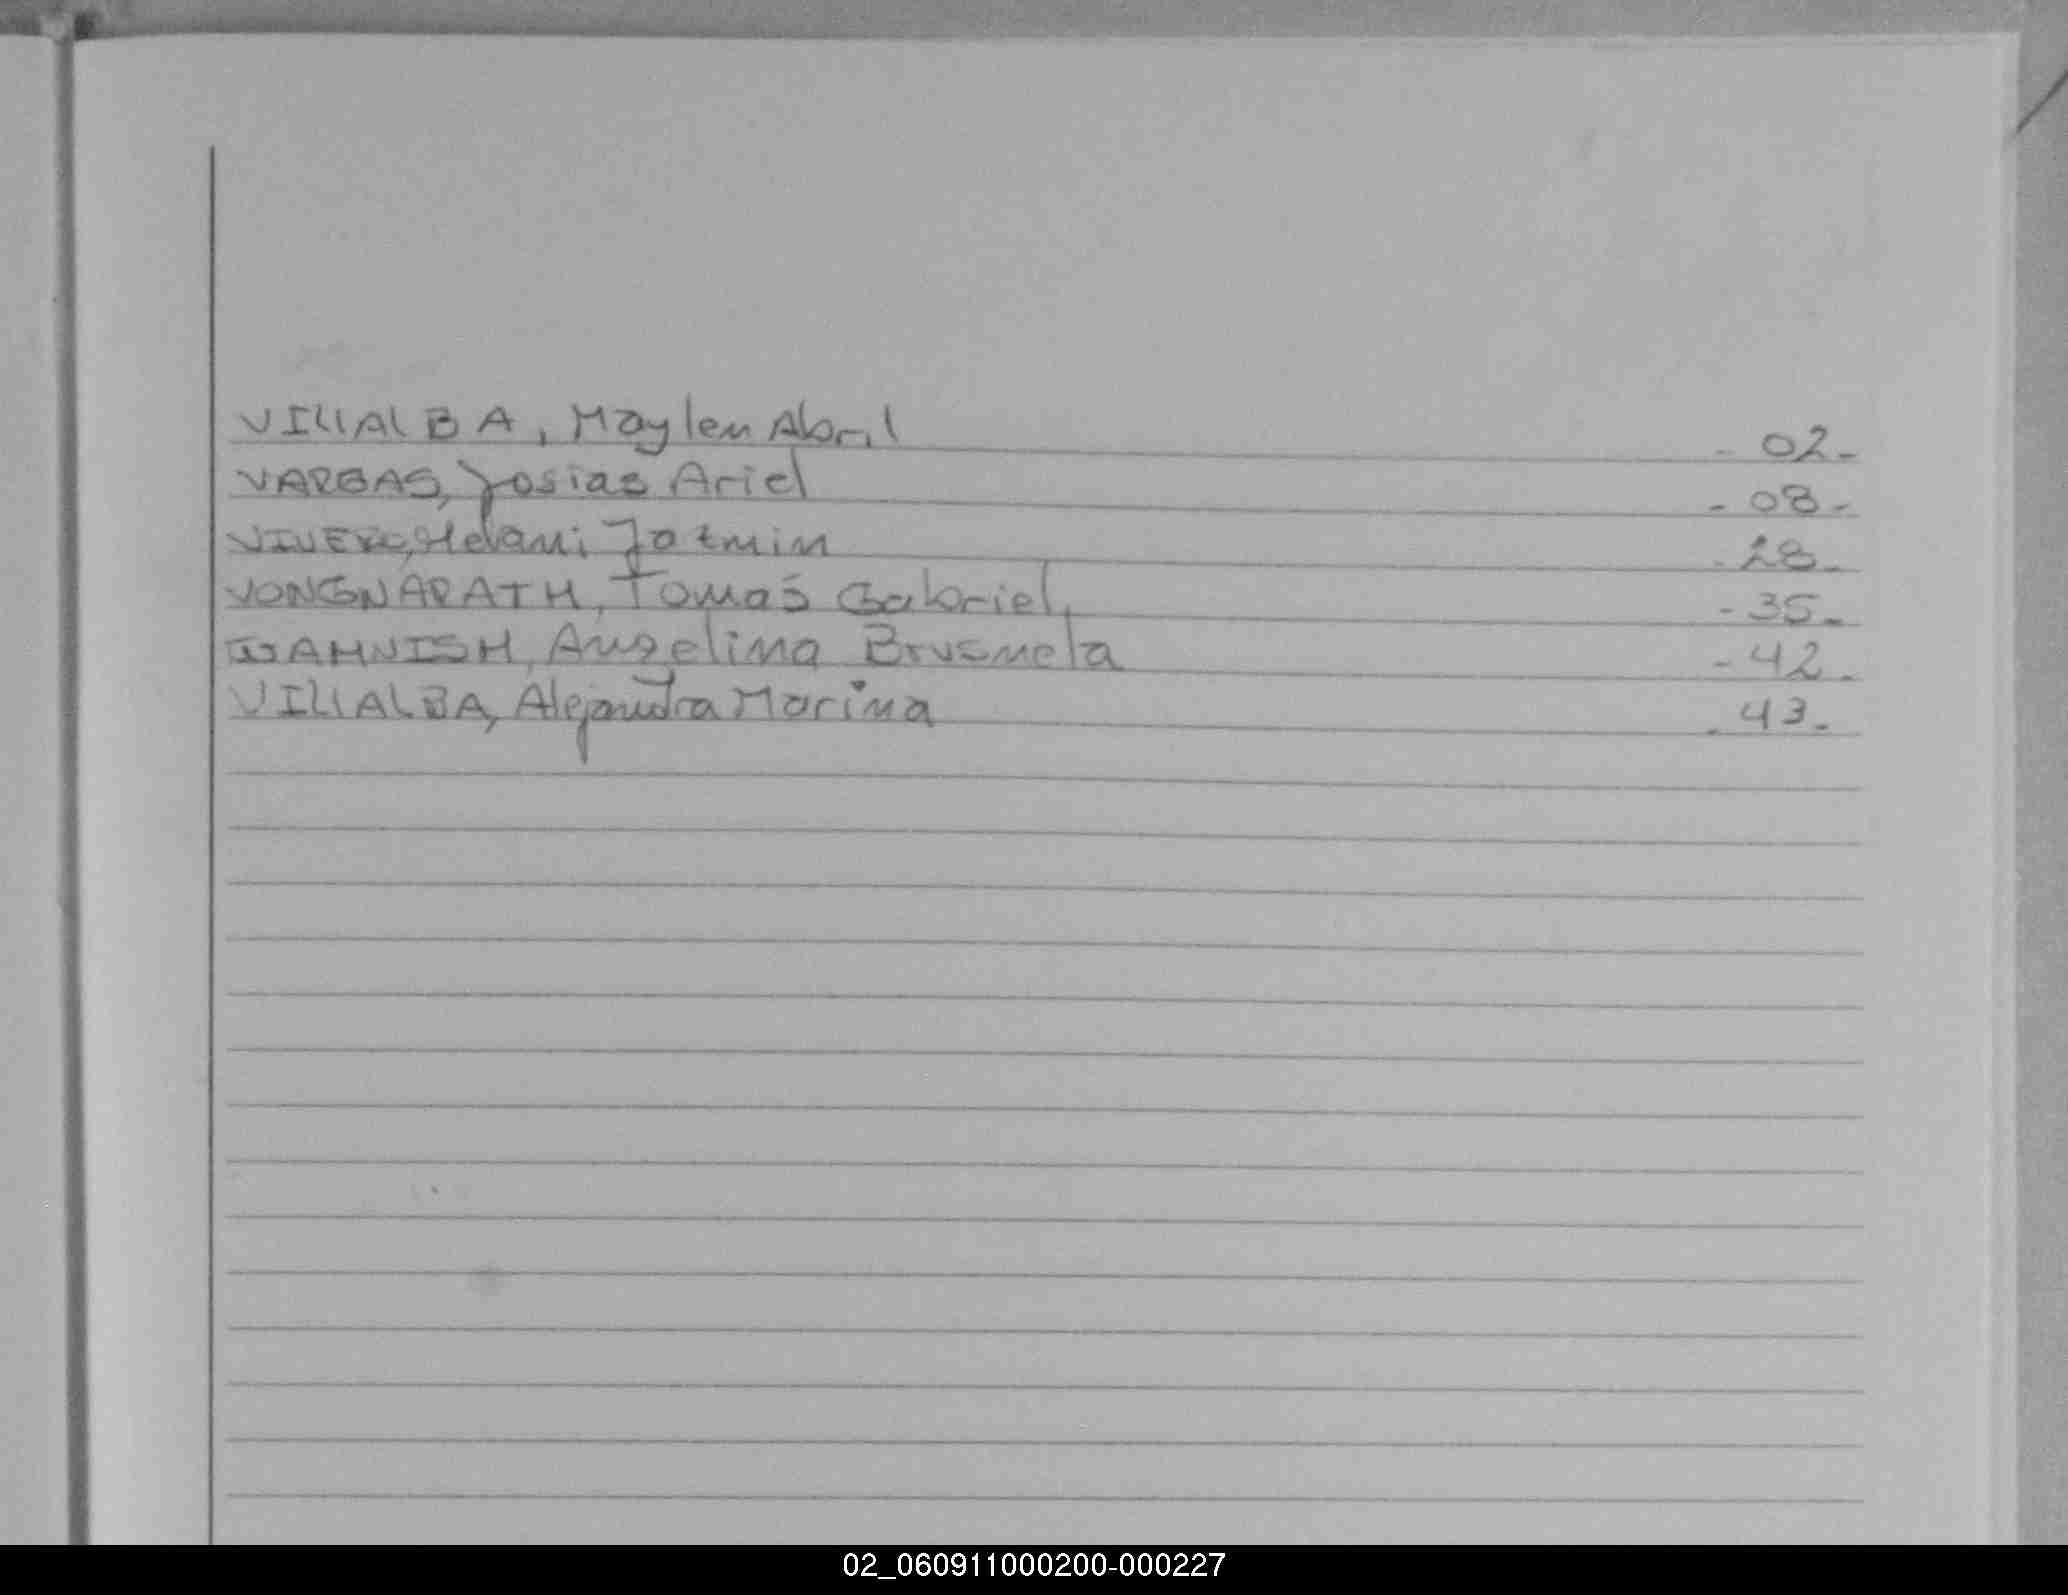 VILLALBA, Maylen Abril - 02 -
VARGAS, Josias Ariel - 08 -
VIVERO, Melani Jazmin - 28 -
VONGNARATH, Tomás Gabriel, - 35 -
WAHNISH, Angelina Brusnela - 42 -
VILLALBA, Alejandra Marina - 43 -
02_060911000200-000227